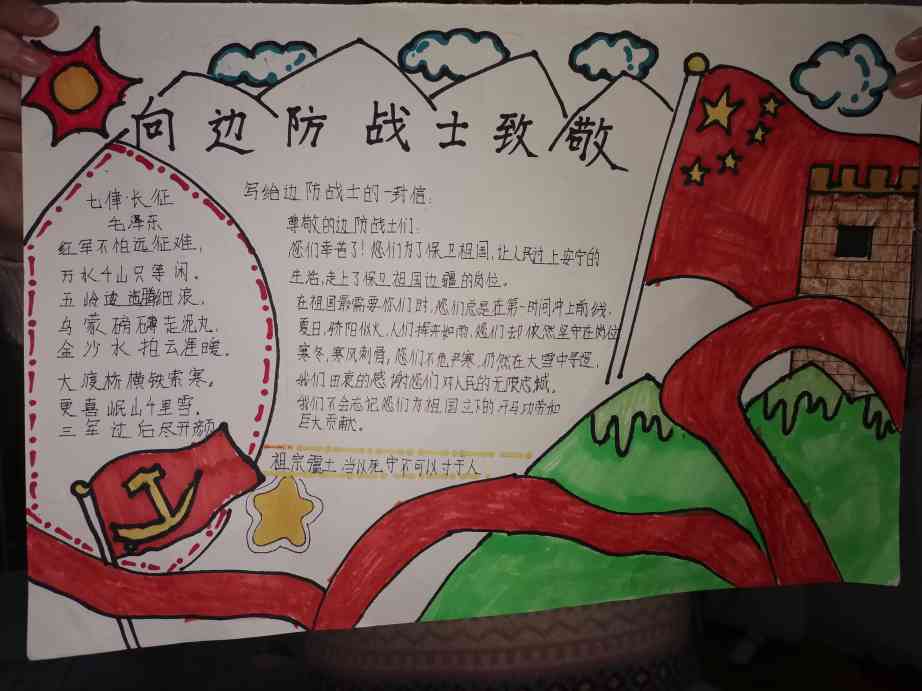 向边防战士致敬
七律·长征
毛泽东
红军不怕远征难，
万水千山只等闲。
五岭逶迤腾细浪，
乌蒙磅礴走泥丸。
金沙水拍云崖暖，
大渡桥横铁索寒。
更喜岷山千里雪，
三军过后尽开颜
写给边防战士的一封信：
尊敬的边防战士们：
您们幸苦了！您们为了保卫祖国，让人民过上安宁的
生活，走上了保卫祖国边疆的岗位。
在祖国最需要你们时，您们总是在第一时间冲上前线，
夏日，骄阳似火，人们挥汗如雨，您们却依然坚守在岗位
寒冬，寒风刺骨，您们不危严寒，仍然在大雪中寻逻，
我们由衷的感谢您们对人民的无限忠诚，
我们不会忘记您们为祖国立下的汗马功劳和
巨大贡献。
祖宗疆土，当以死守，不可以寸于人